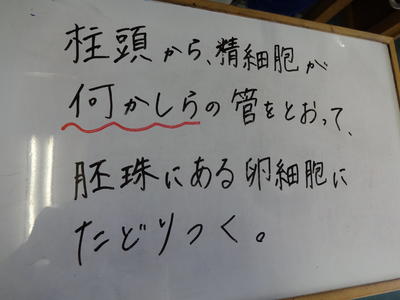 柱頭から、精細胞が
何かしらの管をとおって、
胚珠にある卵細胞に
たどりつく。